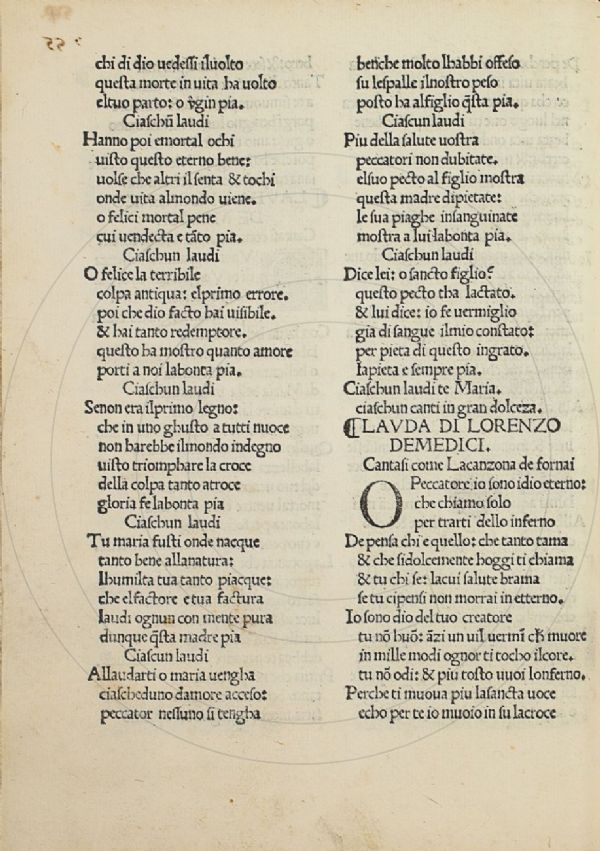 55
chi di dio uedessi iluolto
questa morte in uita ha uolto
eltuo parto: o v̄gin pia.
Ciaschū laudi
Hanno poi emortal ochi
uisto questo eterno bene:
uolse che altri ilsenta & tochi
onde uita almondo uiene.
o felici mortal pene
cui uendecta e tāto pia.
Ciaschun laudi
O felice la terribile
colpa antiqua: elprimo errore.
poi che dio facto hai uisibile.
& hai tanto redemptore.
questo ha mostro quanto amore
porti a noi labonta pia.
Ciaschun laudi
Senon era ilprimo legno:
che in uno ghusto a tutti nuoce
non harebbe ilmondo indegno
uisto triomphare la croce
della colpa tanto atroce
gloria fe labonta pia
Ciaschun laudi
Tu maria fusti onde nacque
tanto bene allanatura:
lhumilta tua tanto piacque:
che elfactore e tua factura
laudi ognun con mente pura
dunque q̄sta madre pia
Ciascun laudi
Allaudarti o maria uengha
ciascheduno damore acceso:
peccator nessuno si tengha
benche molto lhabbi offeso
su lespalle ilnostro peso
posto ha alfiglio q̄sta pia.
Ciascun laudi
Piu della salute uostra
peccatori non dubitate.
elsuo pecto al figlio mostra
questa madre dipietate:
le sua piaghe insanguinate
mostra a lui labonta pia.
Ciaschun laudi
Dice lei: o sancto figlio?
questo pecto tha lactato.
& lui dice: io fe uermiglio
gia di sangue ilmio constato:
per pieta di questo ingrato.
lapieta e sempre pia.
Ciaschun laudi te Maria.
ciaschun canti in gran dolceza.
⁋LAVDA DI LORENZO
DEMEDICI.
Cantasi come Lacanzona de fornai
O Peccatore io sono idio eterno:
che chiamo solo
per trarti dello inferno
De pensa chi e quello: che tanto tama
& che sidolcemente hoggi ti chiama
& tu chi se: lacui salute brama
se tu cipensi non morrai in etterno.
Io sono dio del tuo creatore
tu nō huō: āzi un uil uermī che muore
in mille modi ognor ti tocho ilcore.
tu nō odi: & piu tosto uuoi lonferno.
Perche ti muoua piu lasancta uoce
echo per te io muoio in su lacroce